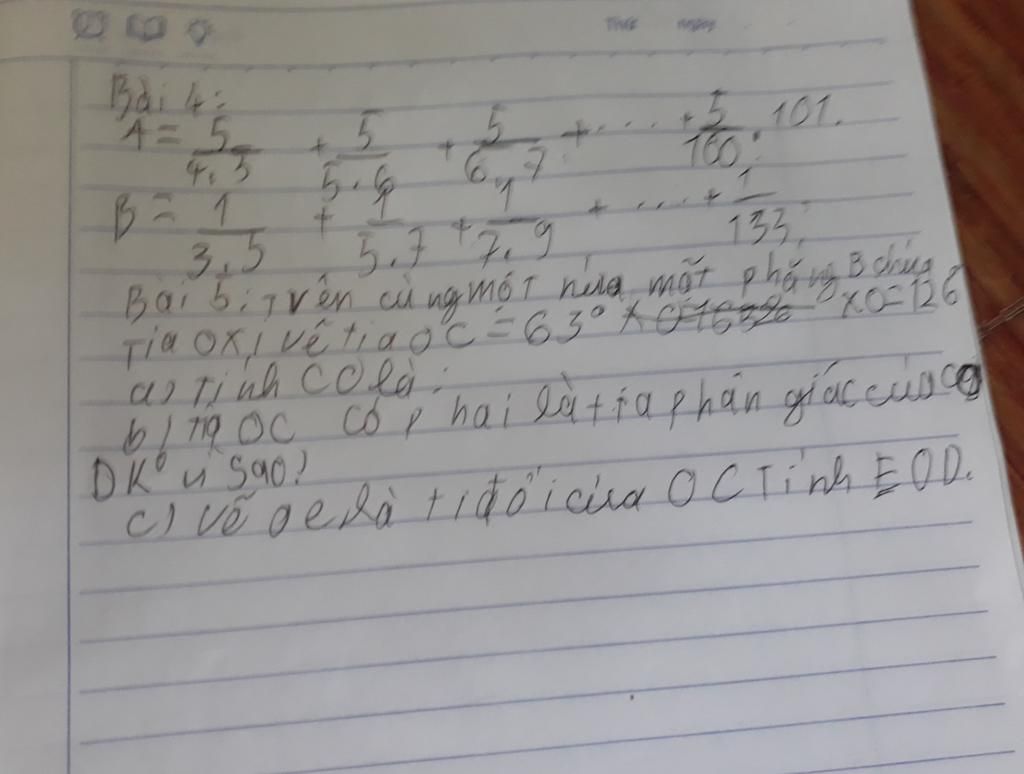 Bài 4:
A = 5/4.5 + 5/5.6 + 5/6.7 + .... + 5/100.101.
B = 1/3.5 + 1/5.7 + 1/7.9 + .... + 1/133.
Bài 5: Trên cùng một nửa mặt phẳng B chứa
Tia OX, vẽ tia OC = 63° xO = 126°
a) Tính CO là:
b) Tia OC có phải là tia phân giác của
Sao?
c) Vẽ oe là tia đối của OC Tính EOD.